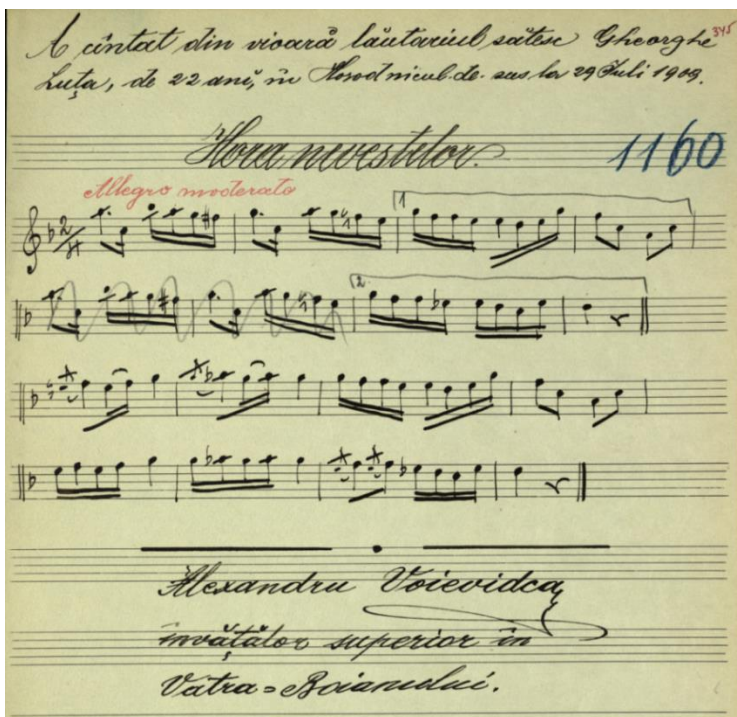 A cîntat din vioară lăutariul sătesc Gheorghe 345
Luța, de 22 anĭ, în de sus la 29 Iuli 1909.
Hora nevestelor. 1160
Allegro moderato
1
2/4
2.
Alexandru Voievidca,
învățător superior în
Vatra=Boianuluĭ.